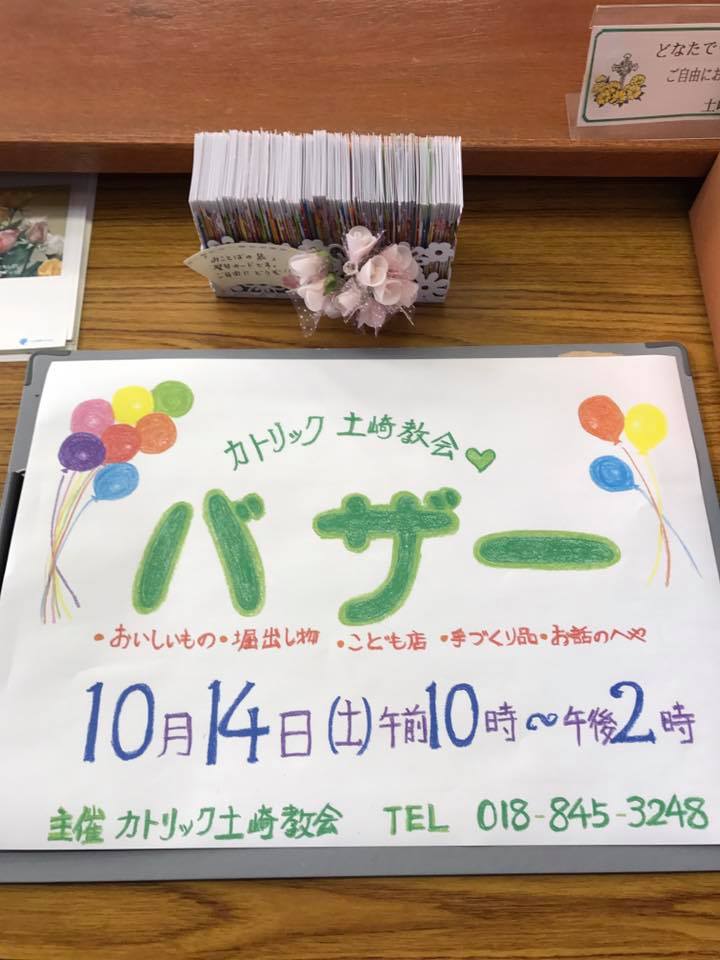 どなたで
ご自由にお
土崎
みことばの
ご自由にどうぞ
カトリック 土崎教会
バザー
・おいしいもの・堀出し物 ・こども店 ・手づくり品・お話のへや
10月14日(土)午前10時～午後2時
主催 カトリック土崎教会 TEL 018-845-3248